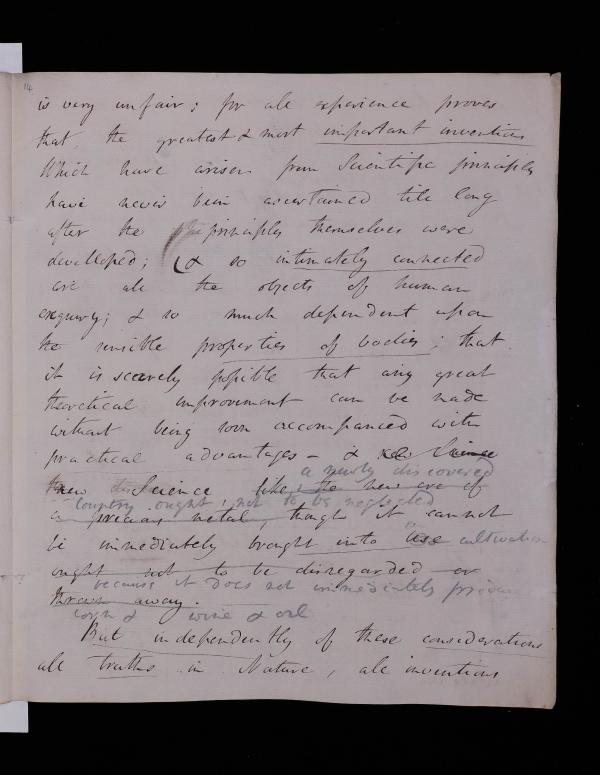 14
is very unfair; for all experience proves
that, the greatest & most important inventions
Which have arisen from Scientific principles
have never been ascertained till long
after the principles themselves were
developped; (& so intimately connected
are all the objects of human
enquiry; & so much dependent upon
the sensible properties of bodies; that
it is scarcely possible that any great
theoretical improvement can be made
without being soon accompanied with
practical advantages – & new Science
a newly discovered
new Science like, the new ore of
Country ought not to be neglected
a precious metal, though it cannot
be immediately brought into use cultivation
ought not to be disregarded or
because it does not immediately produce
thrown away.
corn & wine & oil
But independently of these considerations
all truths in Nature, all inventions